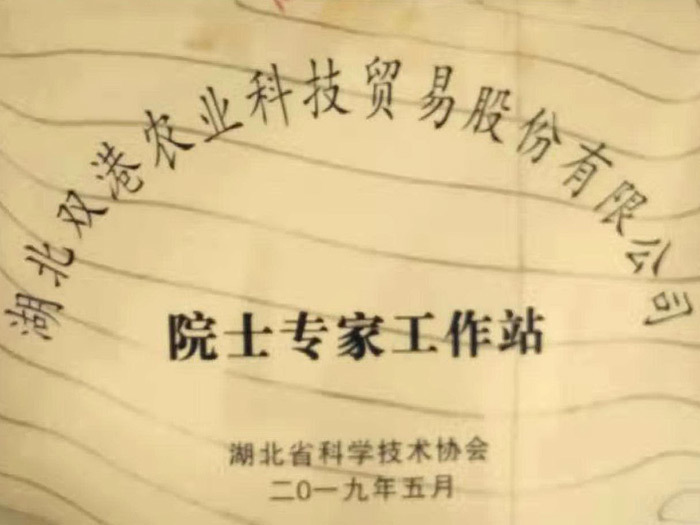 湖北双港农业科技贸易股份有限公司
院士专家工作站
湖北省科学技术协会
二0一九年五月